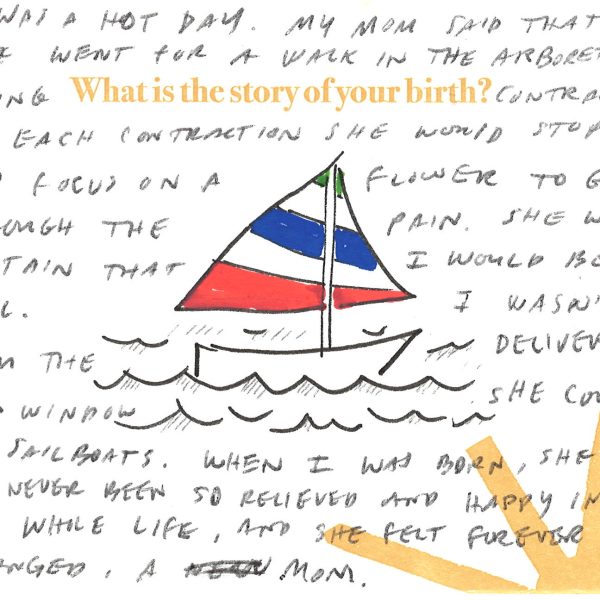 WAS A HOT DAY. MY MOM SAID THAT
WENT FOR A WALK IN THE ARBORET
What is the story of your birth? CONTRAC
EACH CONTRACTION SHE WOULD STOP
FOCUS ON A FLOWER TO G
OUGH THE PAIN. SHE W
TAIN THAT I WOULD B
L. I WASN'
DELIVER
THE
SHE COU
WINDOW
SAILBOATS. WHEN I WAS BORN, SHE
NEVER BEEN SO RELIEVED AND HAPPY IN
WHOLE LIFE, AND SHE FELT FOREVER
ANGED, A MOM.